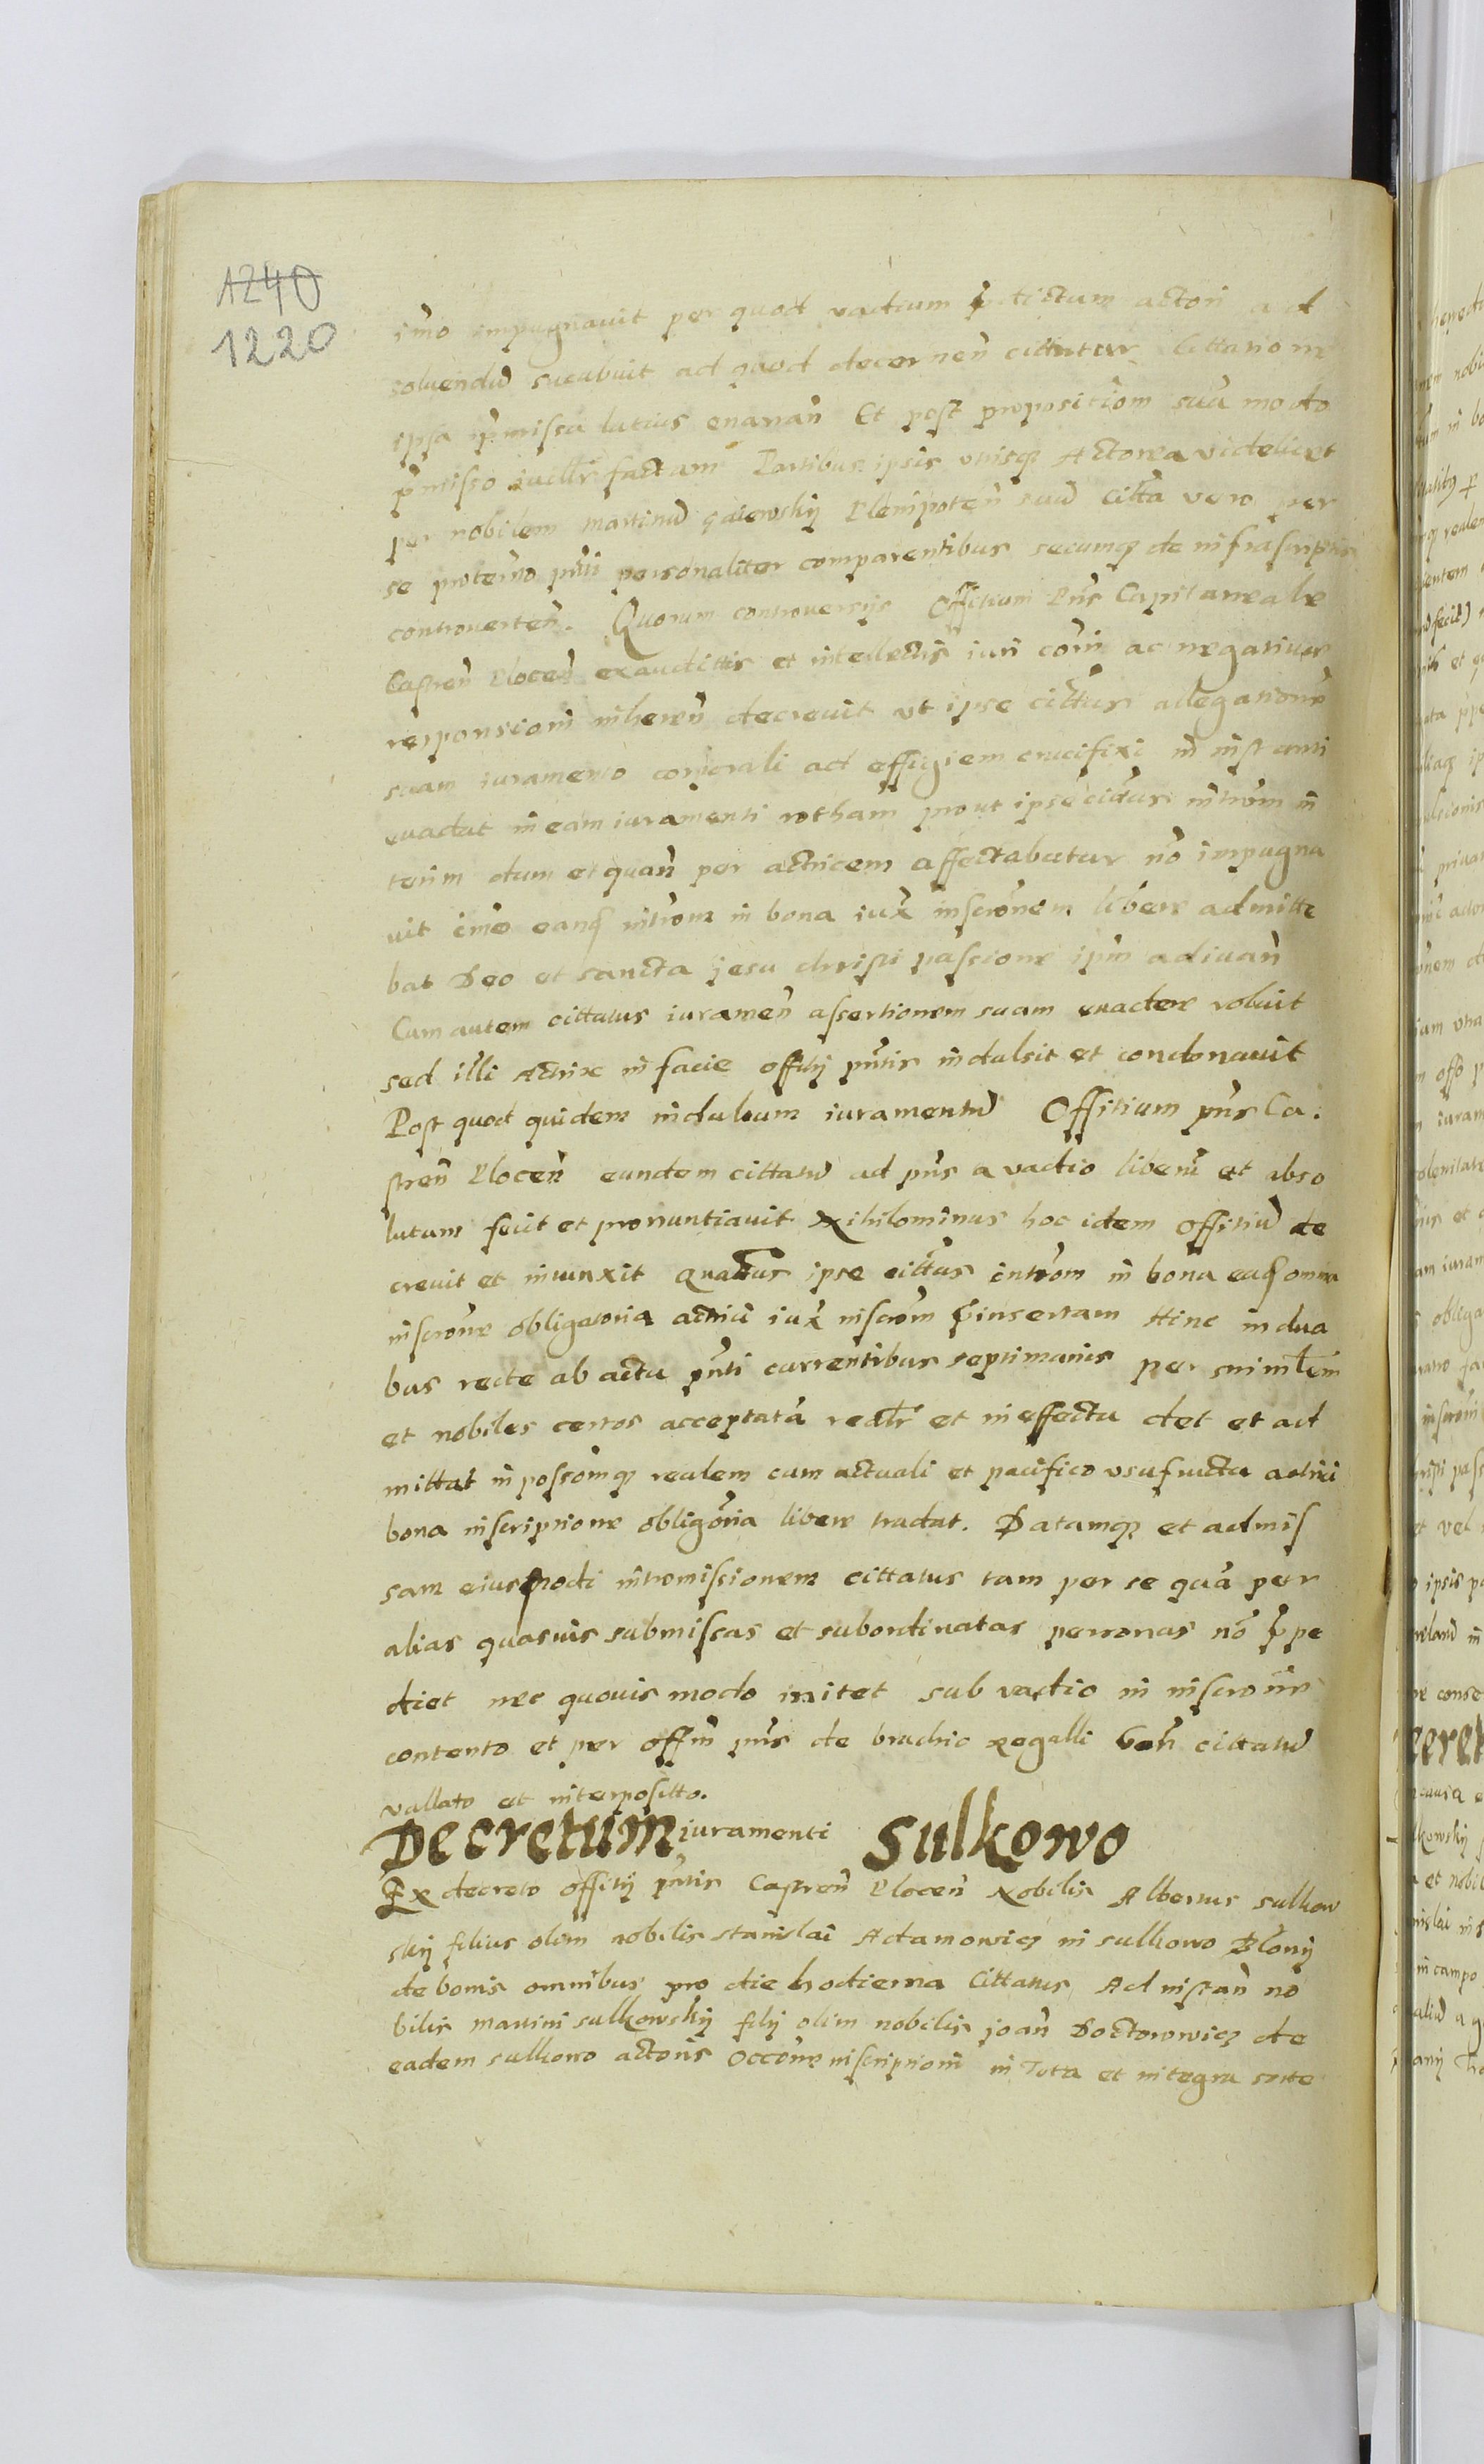 1240
1220
imo impugnavit per quod vadium p̃dictum actori ad
soluendũ sucubuit ad quod decernen̄ cittatur Cittatione
ipsa p̃missa latius enarran̄ Et post propositiom̄ suã modo
p̃misso iudlr̃ factam Partibus ipsis vtrisqꝫ Actorea videlicet
per nobilem martinũ gaiewskÿ Plenipoten̄ suũ Citta vero per
se protermo pñti personaliter comparentibus secumqꝫ de infrascriptis
controuerten̄. Quorum controversÿs Offitium Pñs Capitaneale
Castren̄ Plocen̄ exaudittis et intellectis iuri com̃i ac negatiuae
responsioni inheren̄ decreuit vt ipse cittus allegatione
suam iuramento corporali ad effigiem crucifixi in instanti
euadat in eam iuramenti rotham prout ipse cittus introm̃ in
terim dum et quan̄ per actricem affectabatur nõ impugna
uit imo eanqꝫ introm in bona iux̃ inscrõnem libere admitte
bat Deo et sancta jesu christi passione ipm̃ adiuan̄
Cum autem cittatus iuramen̄ assertionem suam euadere voluit
sed illi Actrix in facie offitÿ pñtis indulsit et condonauit
Post quod quidem indultum iuramentũ Offitium pñs Ca:
stren̄ Plocen̄ eundem cittatũ ad pñs a vadio liberũ et abso
lutum fecit et pronuntiauit Nihilominus hoc idem Offitiũ de
creuit et iniunxit Quattus ipse cittus introm̃ in bona eaqꝫ omnia
inscrõne obligatoria actrici iux̃ inscrõm p̃insertam Hinc in dua
bus recte ab actu pñti currentibus septimanis per minlem̃
et nobiles certos acceptatã realr̃ et in effectu det et ad
mittat in possom̃qꝫ realem cum actuali et pacifico vsufructu actrici
bona inscriptione obligõria libere tradat. Datamqꝫ et admis
sam eiusmodi intromissionem cittatus tam per se quã per
alias quasuis submissas et subordinatas personas nõ p̃pe
diet nec quouis modo initet sub vadio in inscrõne
contento et per offm̃ pñs de brachio regalli Coñ cittatũ
vallato et interpositto.
Decretum iuramenti Sulkowo
Ex decreto offitÿ pñtis Castren̄ Plocen̄ Nobilis Albertus sulkow
skÿ filius olim nobilis stanislai Adamowicz in sulkowo Blonÿ
de bonis omnibus pro die hodierna Cittatus Ad instan̄ no
bilis martini sulkowskÿ filÿ olim nobilis joan̄ Doctorowicz de
eadem sulkowo actoris Occõne inscriptioni in Totta et integra sorte